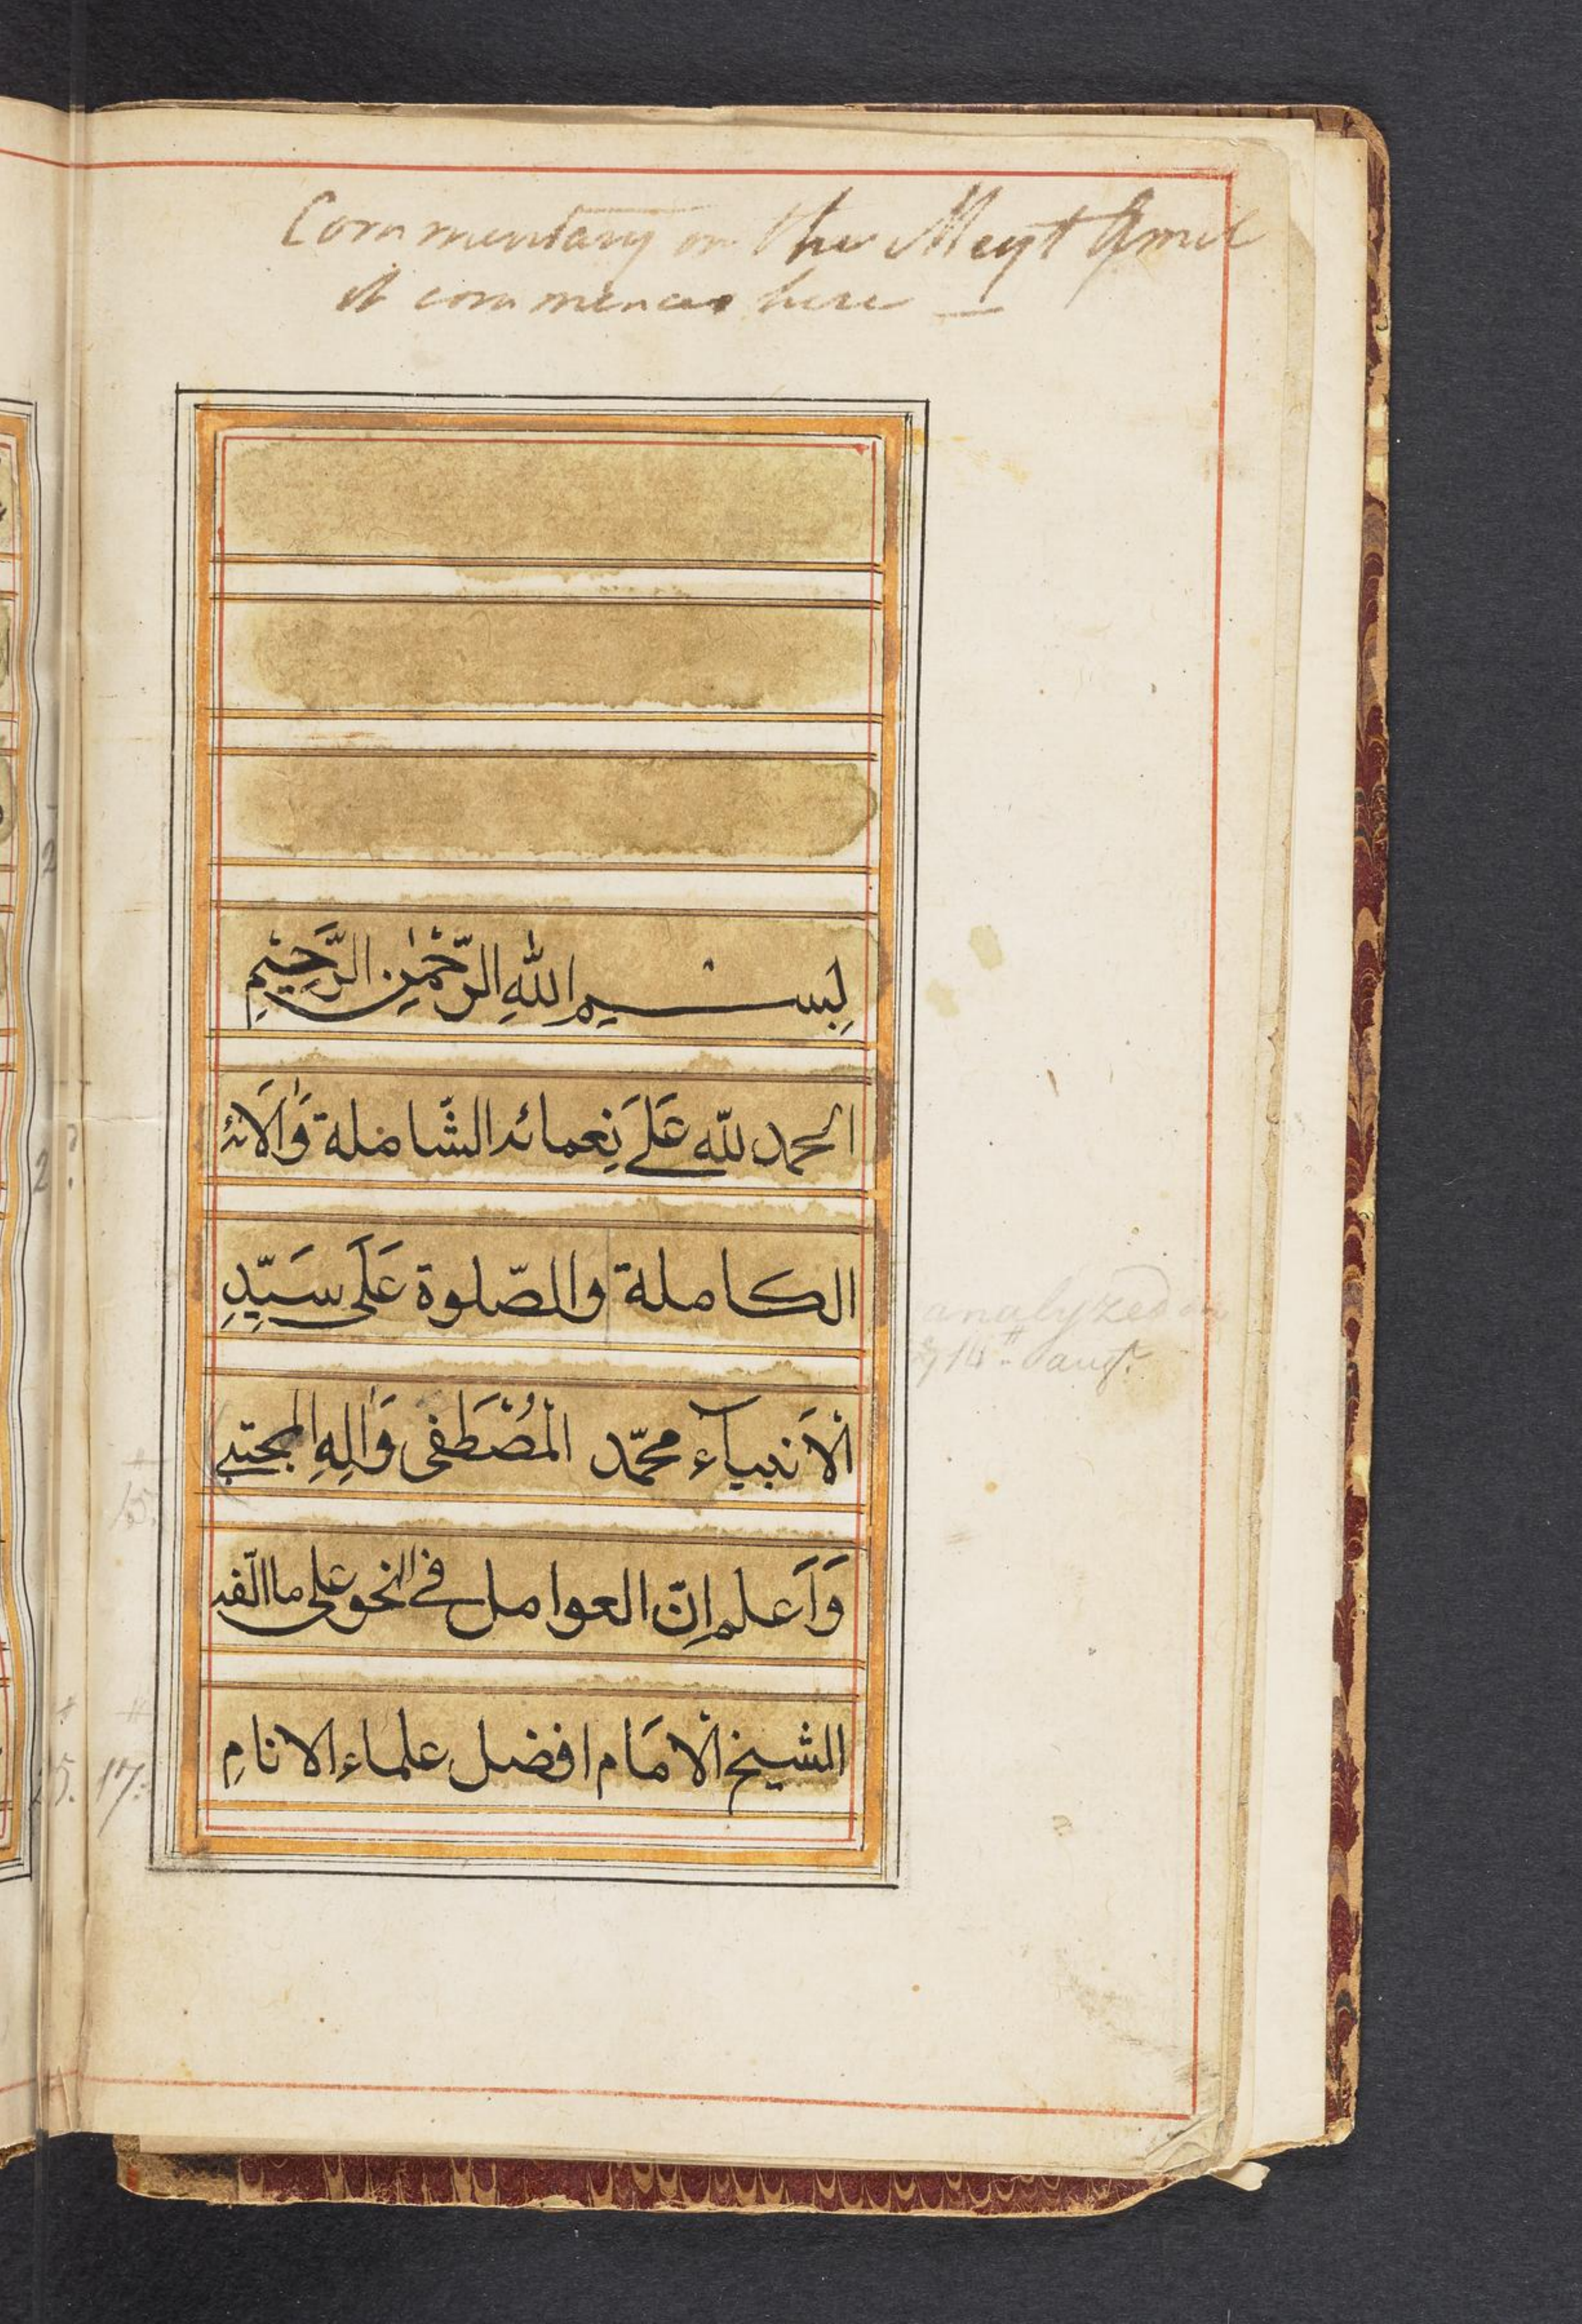 Commentary on the Meyt Amil
it commences here —
بِسْــــمِ اللّٰهِ الرَّحْمٰنِ الرَّحِيْمِ
الحمد للّه عَلےَ نِعمائه الشَّاملة وَاٰلَائه
الكاملة والصّلوة عَلَى سَيِّدِ
الْاَنبيآء محمّد الْمُصْطَفى وَاٰلِهِ المجتبے
وَاَعلم اِنّ العوامل فى النحو على ما الّفه
الشيخ الْامَام افضل علماء الانامِ
analyzed
17.